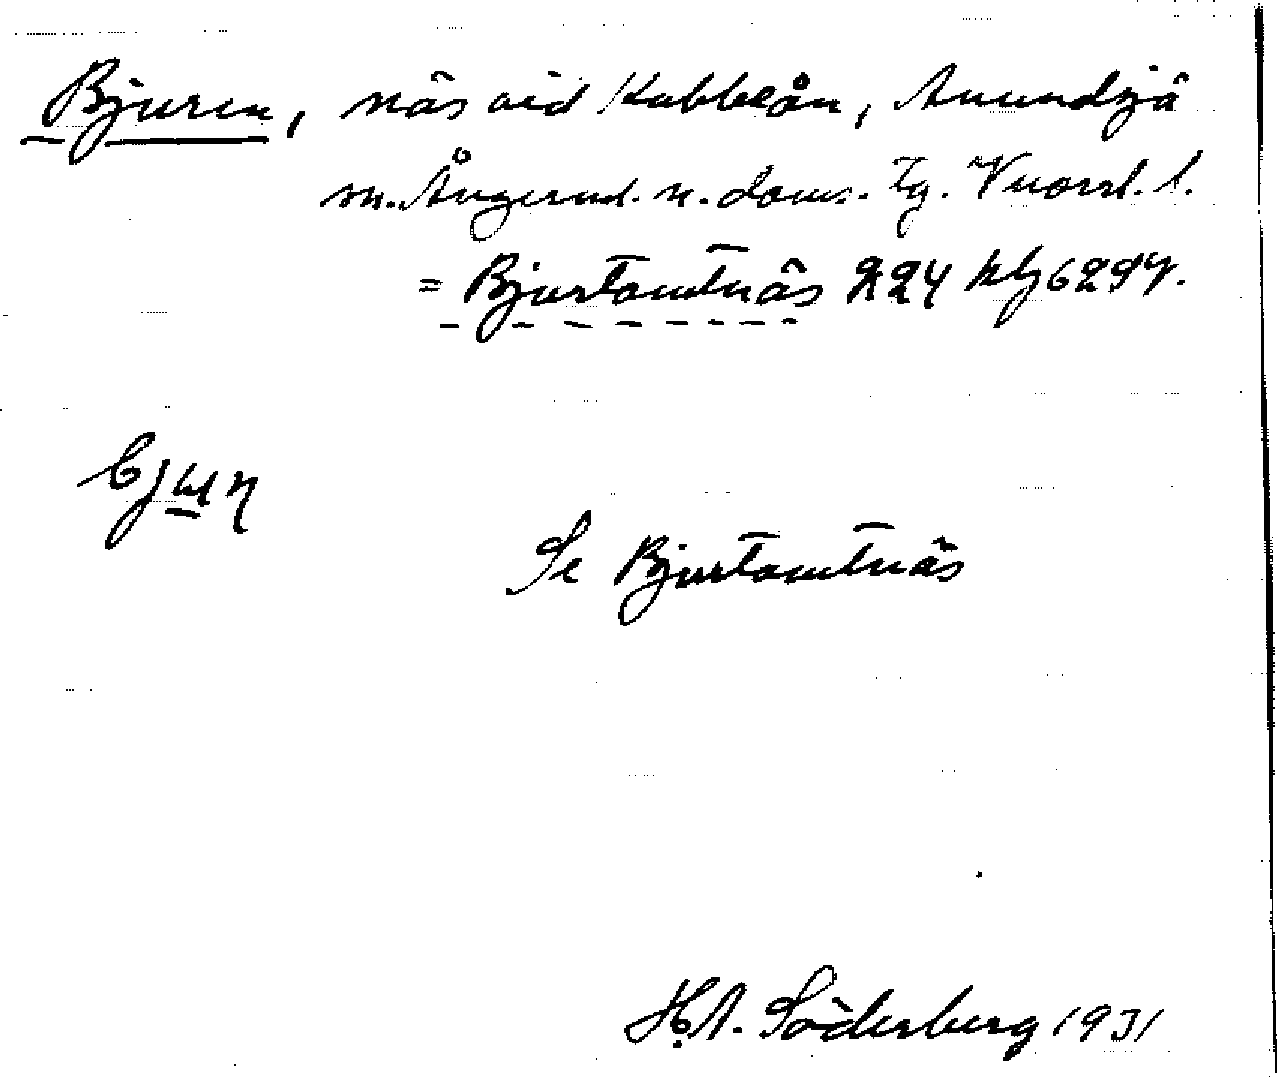 Bjuren, näs vid Kubbeån, Anundsjö
m. Ångerml. n. doms. Tg.
= Bjurtomtnäs 224 hg 6297.
Se Bjurtomtnäs
H.A. Söderberg 1931